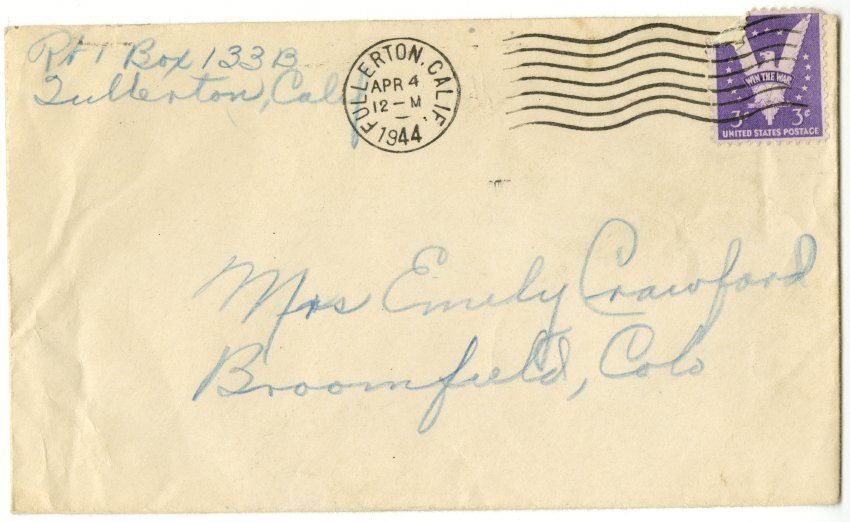 Rt 1 Box 133 B
Fullerton, Calif
FULLERTON, CALIF.
APR 4
12 - M
1944
WIN THE WAR
3¢ 3¢
UNITED STATES POSTAGE
Mrs Emily Crawford
Broomfield, Colo